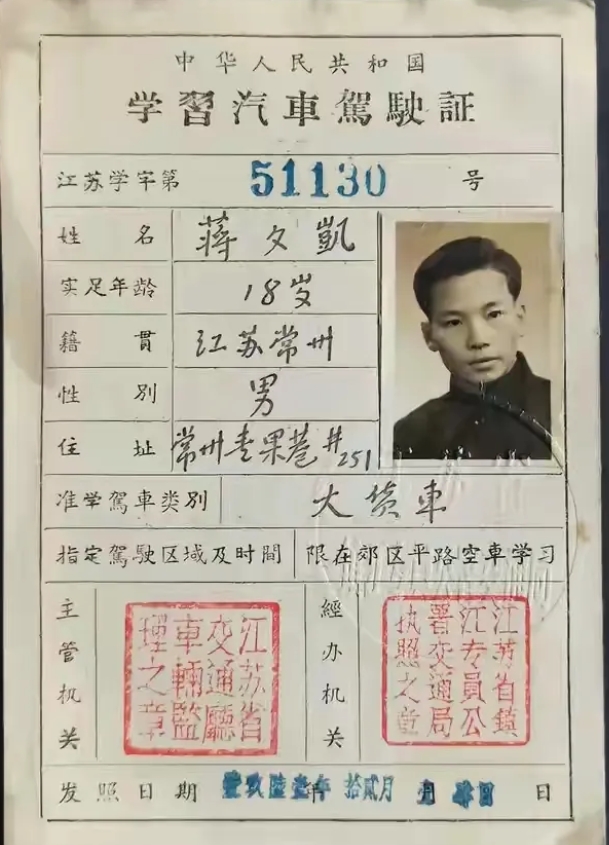 中华人民共和国
学習汽車駕駛証
江苏学字第 51130 号
姓名 蔣文凱
实足年龄 18岁
籍貫 江苏常州
性别 男
住址 常州青果巷#251
准学駕車类別 大货車
指定駕駛区域及时間 限在郊区平路空車学习
主管机关 江苏省交通廳車輛監理之章
經办机关 江苏省鎮江专員公署交通局执照之章
发照日期 壹玖陸壹年 拾貳月 日